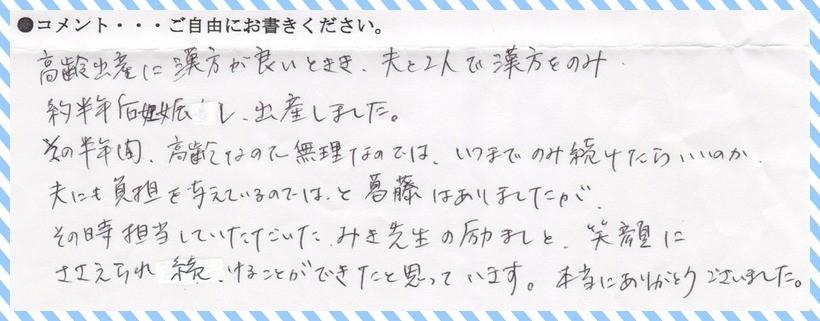 ●コメント・・・ご自由にお書きください。
高齢出産に漢方が良いときき、夫と2人で漢方をのみ
約半年后妊娠し、出産しました。
その半年間、高齢なので無理なのでは、いつまでのみ続けたらいいのか、
夫にも負担を与えているのでは、と葛藤はありましたが、
その時担当していただいた、みき先生の励ましと、笑顔に
ささえられ続けることができたと思っています。本当にありがとうございました。